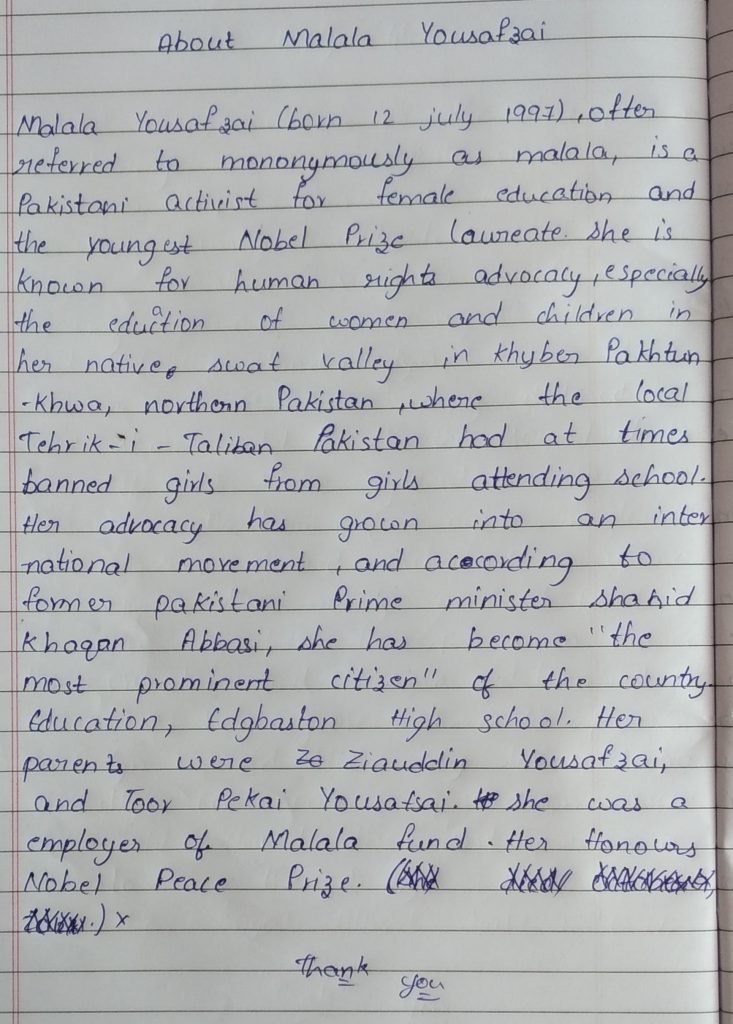 About Malala Yousafzai
Malala Yousafzai (born 12 july 1997), often
referred to mononymously as malala, is a
Pakistani activist for female education and
the youngest Nobel Prize laureate. she is
known for human rights advocacy, especially
the eduaction of women and children in
her native, swat valley in Khyber Pakhtun
-Khwa, northern Pakistan, where the local
Tehrik-i-Taliban Pakistan had at times
banned girls from girls attending school.
Her advocacy has grown into an inter
national movement, and acocording to
former pakistani Prime minister shahid
Khaqan Abbasi, she has become "the
most prominent citizen" of the country.
Education, Edgbaston High school. Her
parents were Ziauddin Yousafzai,
and Toor Pekai Yousafsai. she was a
employer of Malala fund. Her Honours
Nobel Peace Prize.
Thank you